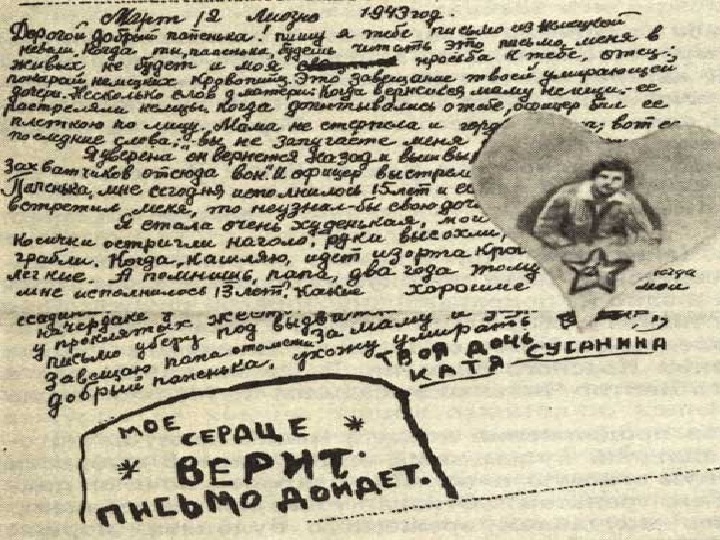 Март, 12 Лиозно 1943 год.
Дорогой добрый папенька! пишу я тебе письмо из немецкой
неволи. Когда ты, папенька, будешь читать это письмо, меня в
живых не будет и моя просьба к тебе, отец:
покарай немецких кровопийц. Это завещание твоей умирающей
дочери. Несколько слов о матери. Когда вернешься маму не ищи. ее
расстреляли немцы. Когда допытывались о тебе, офицер бил ее
плеткою по лицу. Мама не стерпела и гор вот ее
последние слова: "вы не запугаете меня
Я уверена он вернется назад и вышвы
захватчиков отсюда вон. И офицер выстрел
Папенька, мне сегодня исполнилось 15 лет и ес
встретил меня, то не узнал-бы свою доч
Я стала очень худенькая, мои
косички остригли наголо, руки высохли,
грабли. Когда, кашляю, идет изо рта кро
легкие. А помнишь, папа, два года тому когда
мне исполнилось 13 лет? Какие хорошие мои
ссадин
на чердаке у
у проклятых жест
письмо уберу под
Завещаю папа отомсти за маму и
добрый папенька, ухожу умирать
ТВОЯ ДОЧЬ
КАТЯ СУСАНИНА
МОЕ
СЕРДЦЕ
ВЕРИТ.
ПИСЬМО ДОЙДЕТ.